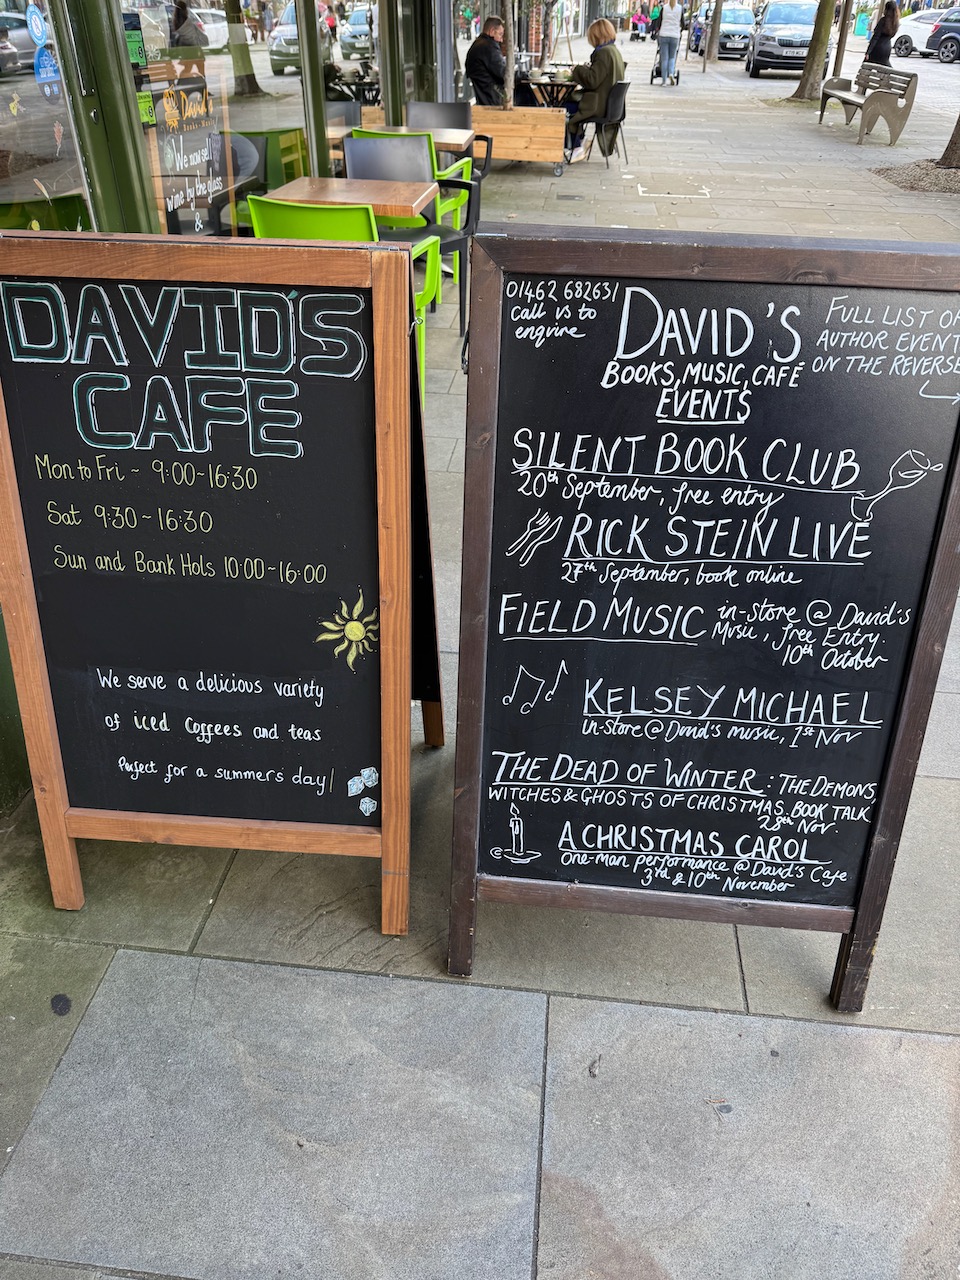 David's
Books · Music
We now sell
wine by the glass
&
DAVID'S
CAFE
Mon to Fri ~ 9:00~16:30
Sat 9:30~16:30
Sun and Bank Hols 10:00~16:00
We serve a delicious variety
of iced coffees and teas
Perfect for a summer's day!
01462 682631
Call us to
enquire
DAVID'S
BOOKS, MUSIC, CAFÉ
EVENTS
FULL LIST OF
AUTHOR EVENT
ON THE REVERSE
SILENT BOOK CLUB
20th September, free entry
RICK STEIN LIVE
27th September, book online
FIELD MUSIC in-store @ David's
Music, free Entry.
10th October
KELSEY MICHAEL
in-store @ David's music, 1st Nov
THE DEAD OF WINTER: THE DEMONS,
WITCHES & GHOSTS OF CHRISTMAS, BOOK TALK
28th Nov.
A CHRISTMAS CAROL
One-man performance @ David's Cafe
3rd & 10th November